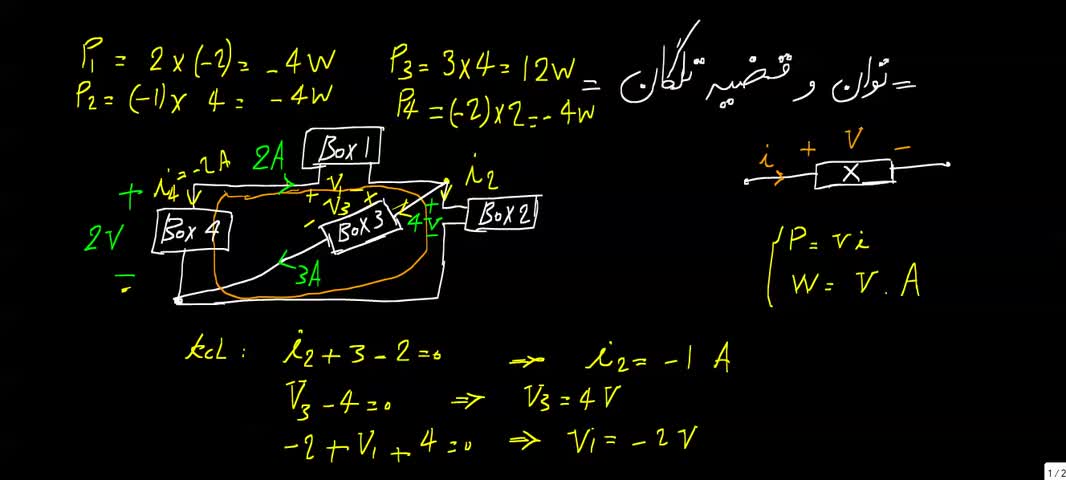 P1 = 2 × (-2) = -4W
P2 = (-1) × 4 = -4W
P3 = 3 × 4 = 12W
P4 = (-2) × 2 = -4W
= توان و قضیه تلگان =
Box 1
2A
i4 = -2A
i2
+ V1 -
- V3 +
+ 2V -
Box 4
Box 3
+ 4V -
Box 2
3A
i + V -
X
P = vi
W = V . A
KCL : i2 + 3 - 2 = 0 ⇒ i2 = -1 A
V3 - 4 = 0 ⇒ V3 = 4 V
-2 + V1 + 4 = 0 ⇒ V1 = -2 V
1/2